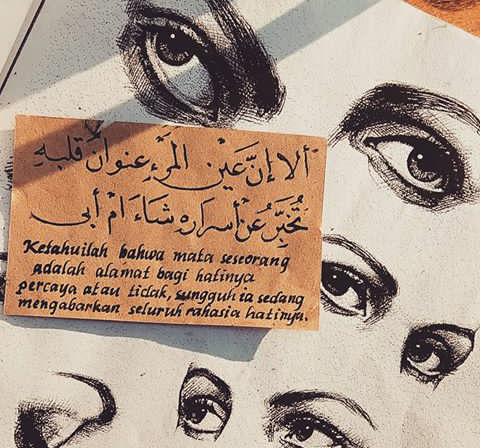 ألا إنّ عَيْن المَرْءِ عنوانُ قلبهِ
تُخَبِّرُ عَنْ أسرارِهِ شَاءَ أمْ أبى
Ketahuilah bahwa mata seseorang
adalah alamat bagi hatinya
percaya atau tidak, sungguh ia sedang
mengabarkan seluruh rahasia hatinya.